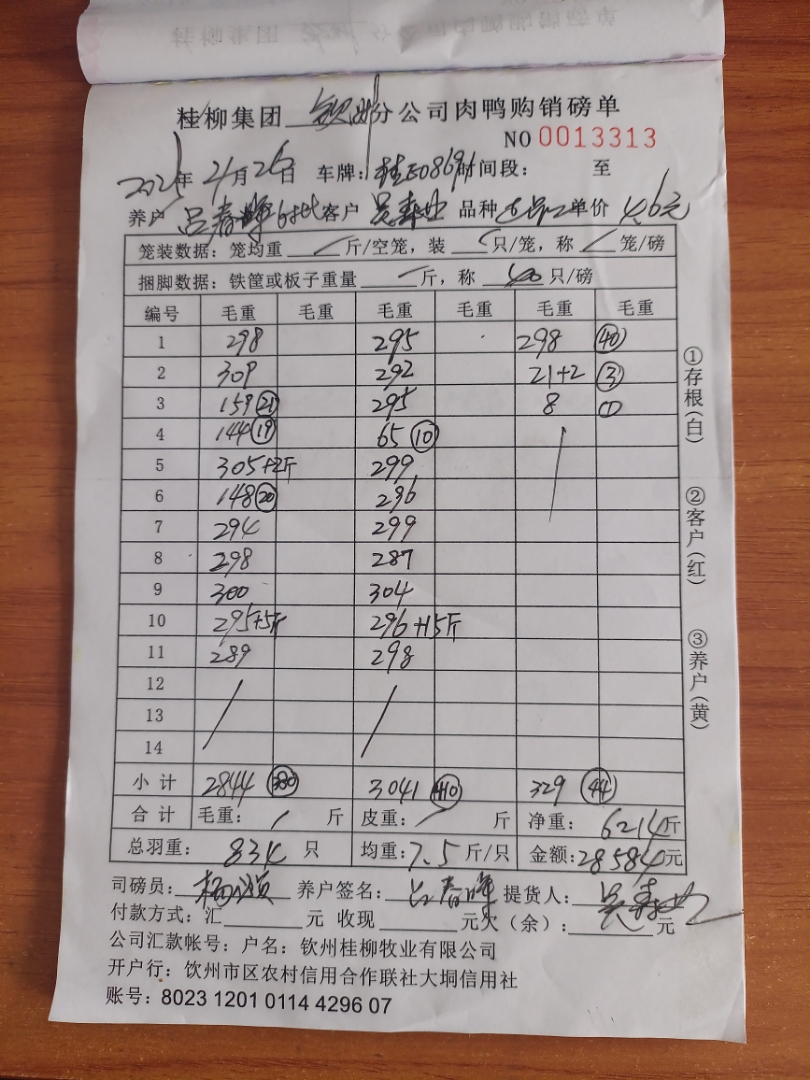 桂柳集团 钦州 分公司肉鸭购销磅单
NO 0013313
2025年 4月 26日 车牌: 桂E0869 时间段: 至
养户 吕春晖6批 客户 吴 品种 单价 4.6元
笼装数据: 笼均重 / 斤/空笼, 装 / 只/笼, 称 / 笼/磅
捆脚数据: 铁筐或板子重量 / 斤, 称 40 只/磅
编号 毛重 毛重 毛重 毛重 毛重 毛重
1 298 295 298 ㊵
2 309 292 21+2 ③
3 159 ㉑ 295 8 ①
4 144 ⑲ 65 ⑩
5 305+2斤 299
6 148 ⑳ 296
7 294 299
8 298 287
9 300 304
10 295+5斤 296+15斤
11 289 298
12
13
14
小计 2844 (380) 3041 (410) 329 ㊹
合计 毛重: / 斤 皮重: / 斤 净重: 6214斤
总羽重: 834 只 均重: 7.5 斤/只 金额: 28584元
司磅员: 养户签名: 吕春晖 提货人: 吴
付款方式: 汇 元 收现 元欠(余): 元
公司汇款帐号: 户名: 钦州桂柳牧业有限公司
开户行: 钦州市区农村信用合作联社大垌信用社
账号: 8023 1201 0114 4296 07
①存根(白)
②客户(红)
③养户(黄)